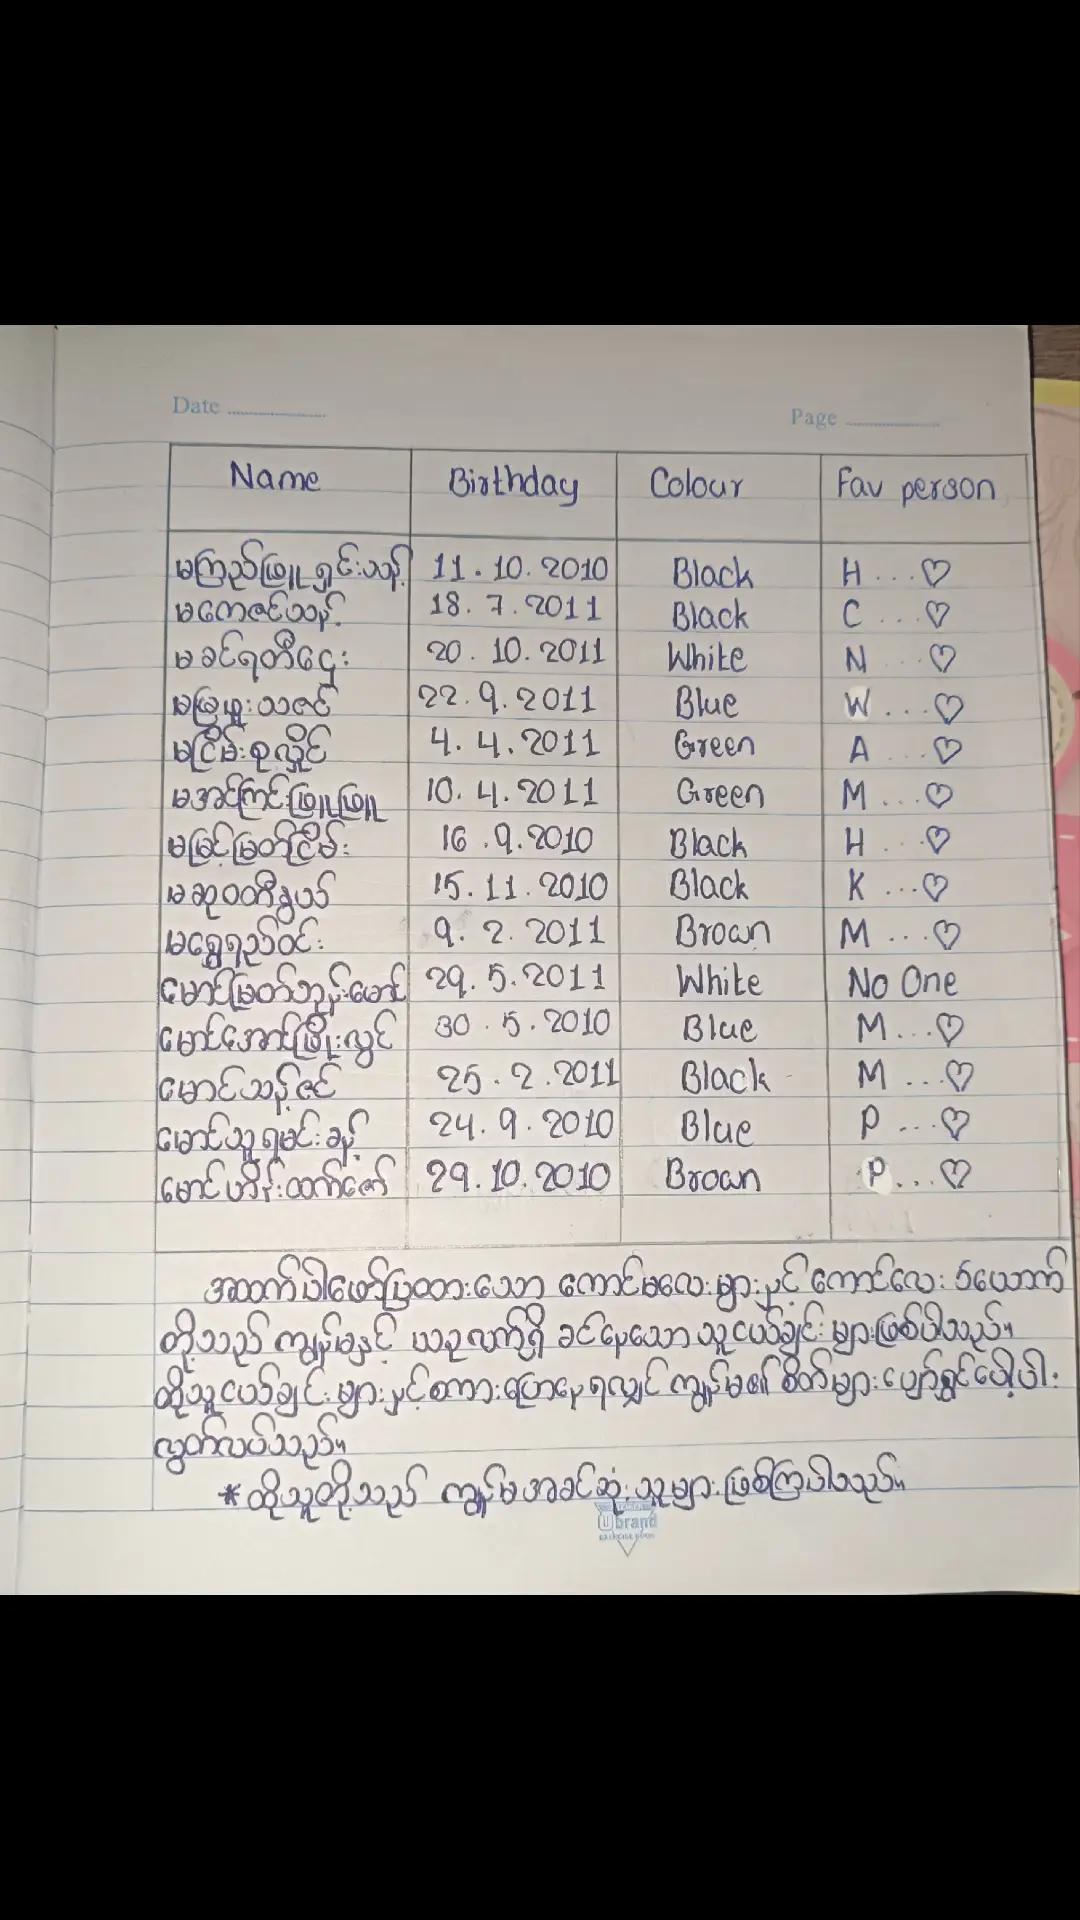 Date
Page
Name Birthday Colour Fav person
မကြည်ဖြူရှင်းသန့် 11.10.2010 Black H...♡
မကေဇင်သန့် 18.7.2011 Black C...♡
မခင်ရတီဌေး 20.10.2011 White N...♡
မဖြူဖူးသဇင် 22.9.2011 Blue W...♡
မငြိမ်းစုလှိုင် 4.4.2011 Green A...♡
မအင်ကြင်းဖြူဖြူ 10.4.2011 Green M...♡
မမြင့်မြတ်ငြိမ်း 16.9.2010 Black H...♡
မဆုဝတီနွယ် 15.11.2010 Black K...♡
မရွှေရည်ဝင်း 9.2.2011 Brown M...♡
မောင်မြတ်ဘုန်းမော် 29.5.2011 White No One
မောင်အောင်ဖြိုးလွင် 30.5.2010 Blue M...♡
မောင်သန့်ဇင် 25.2.2011 Black M...♡
မောင်သူရမင်းခန့် 24.9.2010 Blue P...♡
မောင်ဟိန်းထက်ဇော် 29.10.2010 Brown P...♡
အထက်ပါဖော်ပြထားသော ကောင်မလေးများနှင့် ကောင်လေး ၆ယောက်
တို့သည် ကျွန်မနှင့် ယခုလက်ရှိ ခင်နေသော သူငယ်ချင်းများဖြစ်ပါသည်။
ထိုသူငယ်ချင်းများနှင့်စကားပြောနေရလျှင် ကျွန်မ၏ စိတ်များပျော်ရွှင်ပေါ့ပါး
လွတ်လပ်သည်။
*ထိုသူတို့သည် ကျွန်မအခင်ဆုံးသူများဖြစ်ကြပါသည်။
U brand
exercise book